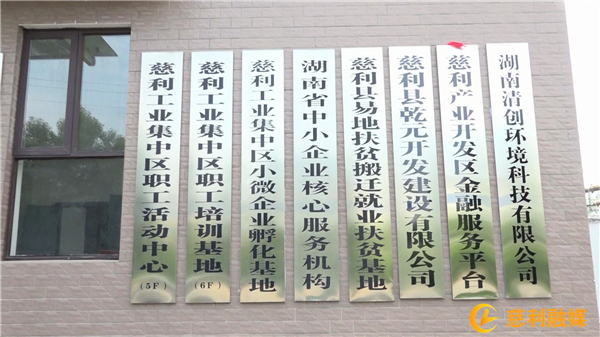 慈利工业集中区职工活动中心
(5F)
慈利工业集中区职工培训基地
(6F)
慈利工业集中区小微企业孵化基地
湖南省中小企业核心服务机构
慈利县易地扶贫搬迁就业扶贫基地
慈利县乾元开发建设有限公司
慈利产业开发区金融服务平台
湖南清创环境科技有限公司
慈利融媒